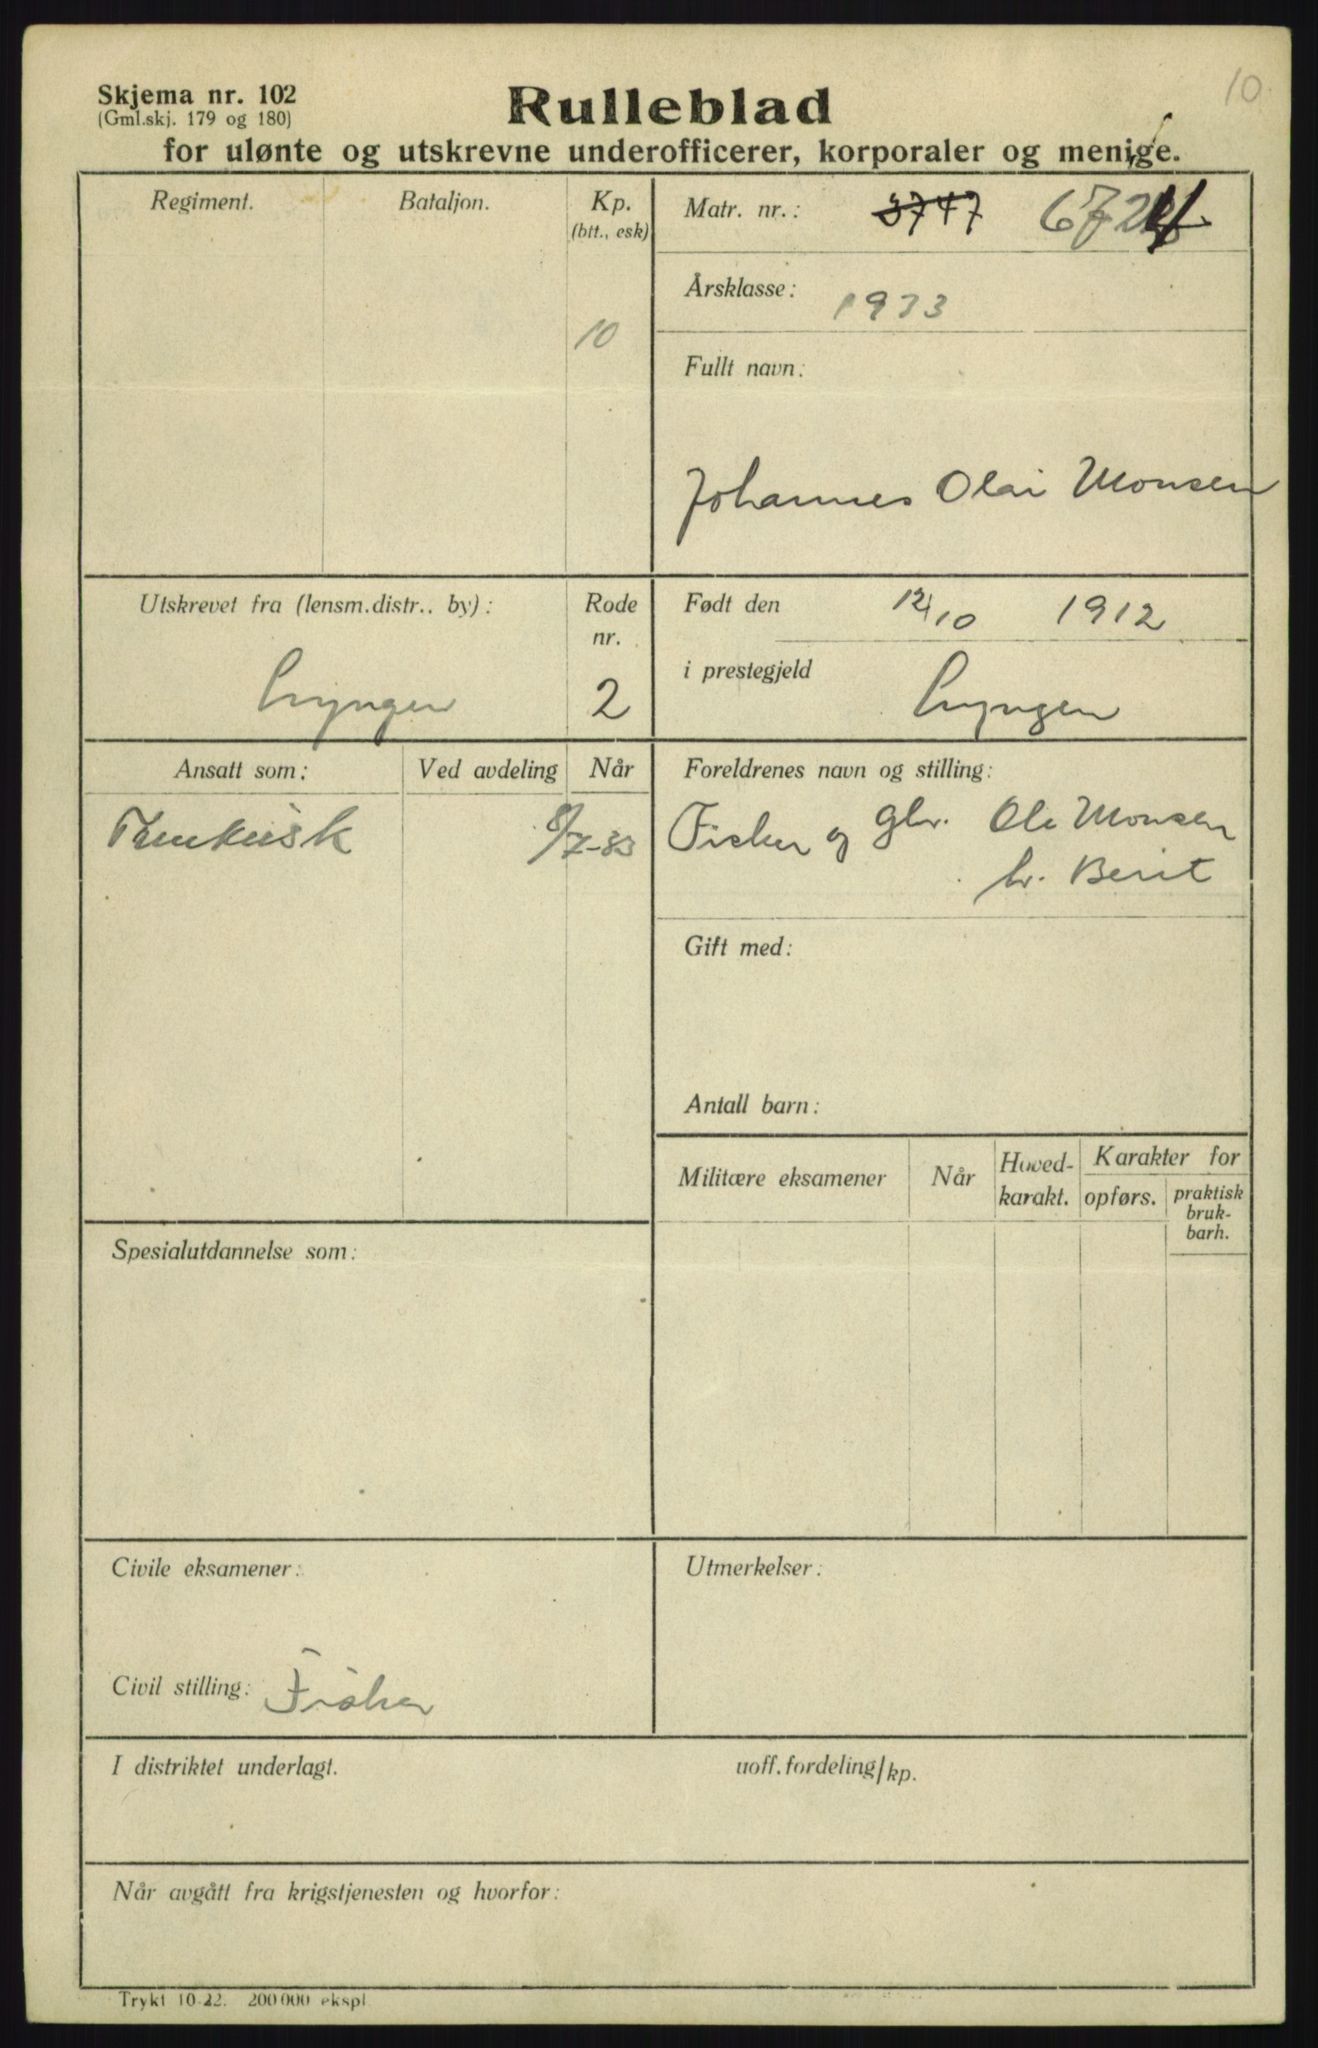 10
Skjema nr. 102
(Gml.skj. 179 og 180)
Rulleblad
for ulønte og utskrevne underofficerer, korporaler og menige.
Regiment.
Bataljon.
Kp.
(btt., esk)
10
Matr. nr.: 3747
Årsklasse: 1933
Fullt navn:
Johannes Olai Monsen
Utskrevet fra (lensm.distr.. by):
Lyngen
Rode
nr.
2
Født den 12/10 1912
i prestegjeld Lyngen
Ansatt som:
Ved avdeling
Når
8/7-33
Foreldrenes navn og stilling:
Fisker og gbr. Ole Monsen
h. Berit
Gift med:
Antall barn:
Militære eksamener
Når
Hoved-
karakt.
Karakter for
opførs.
praktisk
bruk-
barh.
Spesialutdannelse som:
Civile eksamener:
Civil stilling: Fisker
Utmerkelser:
I distriktet underlagt.
uoff. fordeling/kp.
Når avgått fra krigstjenesten og hvorfor:
Trykt 10-22. 200000 ekspl.